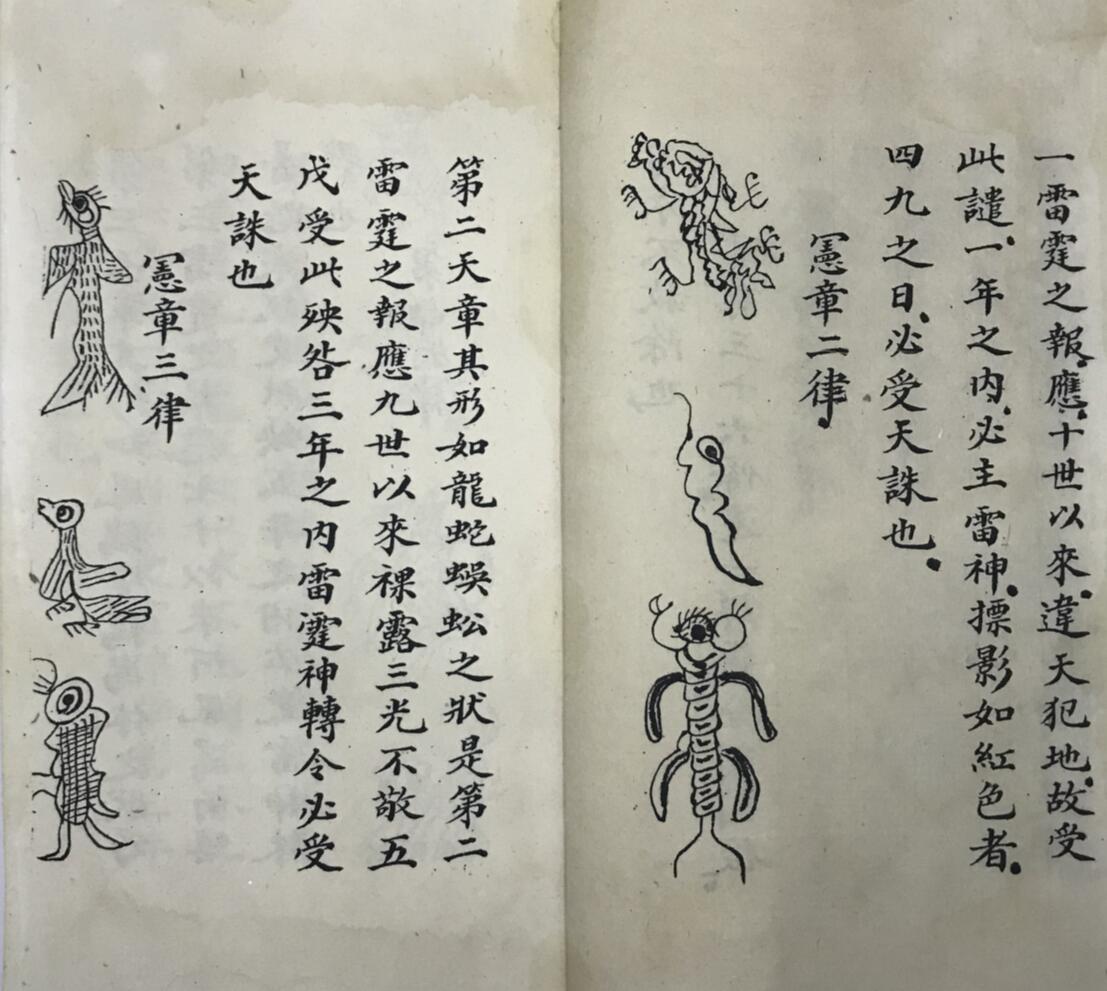 一雷霆之報應十世以來違天犯地故受
此譴一年之內必主雷神摽影如紅色者
四九之日必受天誅也
憲章二律
第二天章其形如龍蛇蜈蚣之狀是第二
雷霆之報應九世以來裸露三光不敬五
戊受此殃咎三年之內雷霆神轉令必受
天誅也
憲章三律